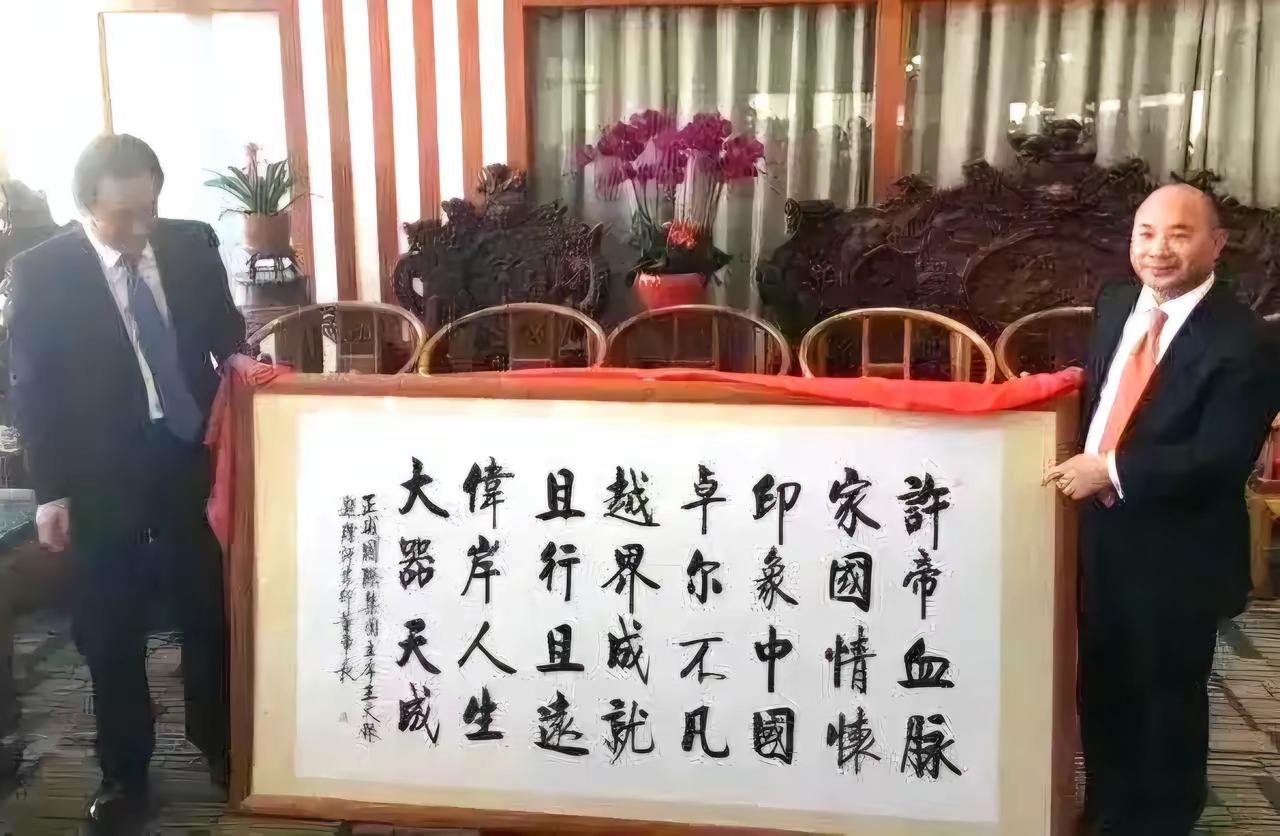 許帝血脉
家國情懷
印象中國
卓尔不凡
越界成就
且行且遠
偉岸人生
大器天成
國際集團主席王天
董事長